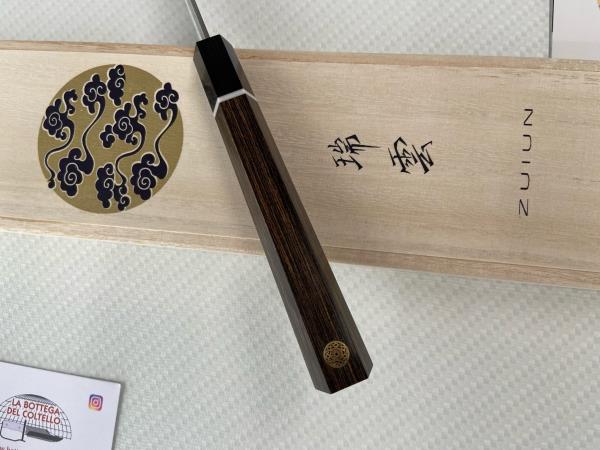 瑞雲
ZUIUN
LA BOTTEGA
DEL COLTELLO